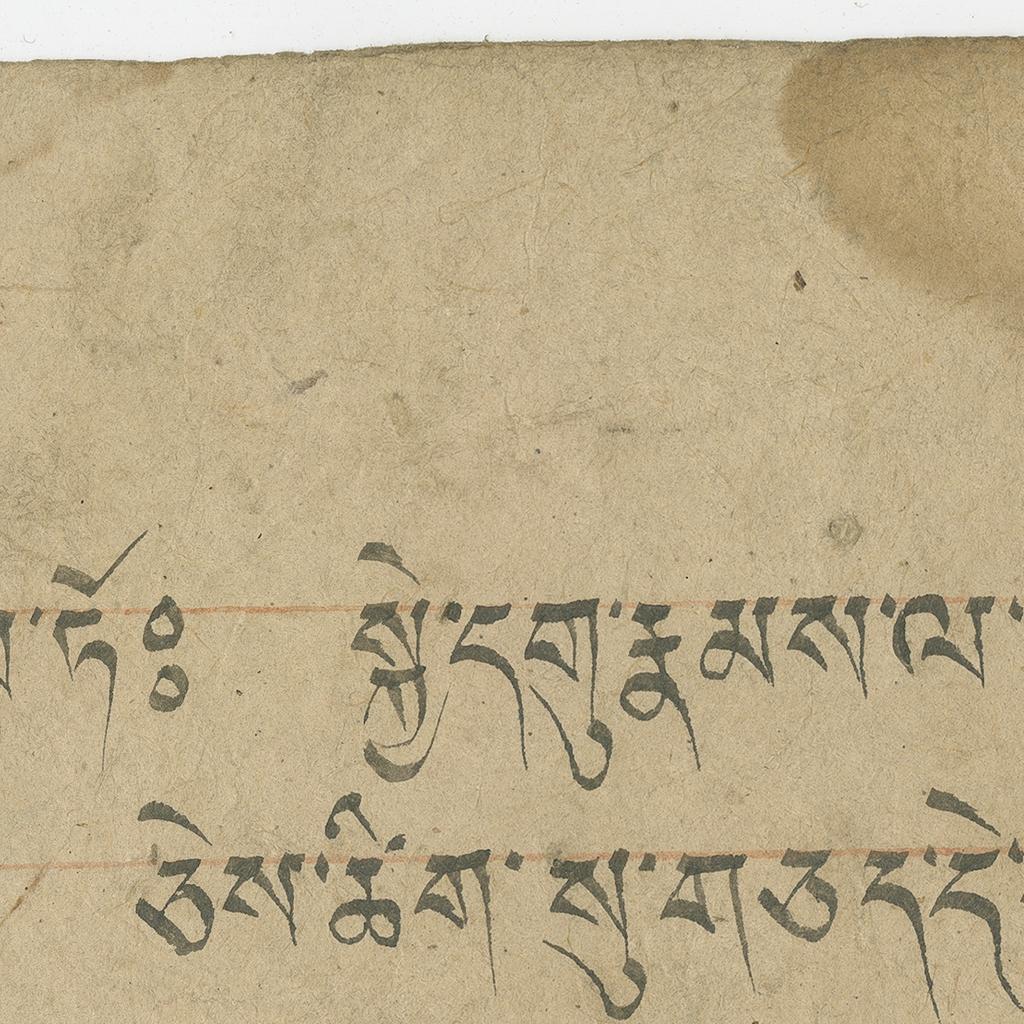 ཏོ༔ སྐྱེ་དགུ་རྣམས་ལ་
ཅེས་ཚིག་སུ་གཅད་དེ་